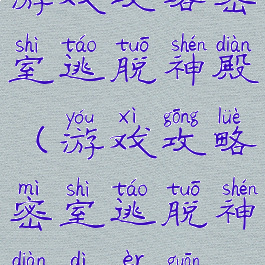 游戏攻略密
shì táo tuō shén diàn
室逃脱神殿
yóu xì gōng lüè
（游戏攻略
mì shì táo tuō shén
密室逃脱神
diàn dì èr guān